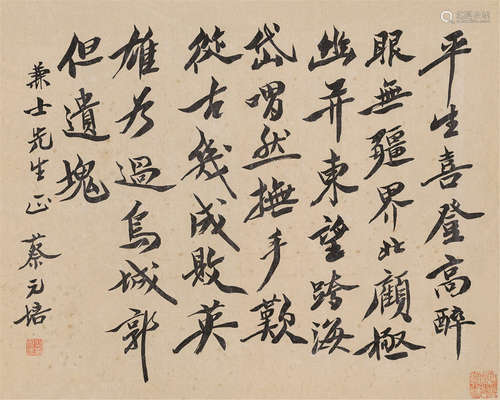 平生喜登高醉
眼無疆界北顧極
幽并東望跨海
岱喟然撫手歎
從古幾成敗英
雄過鳥城郭
但遺塊
兼士先生正
蔡元培